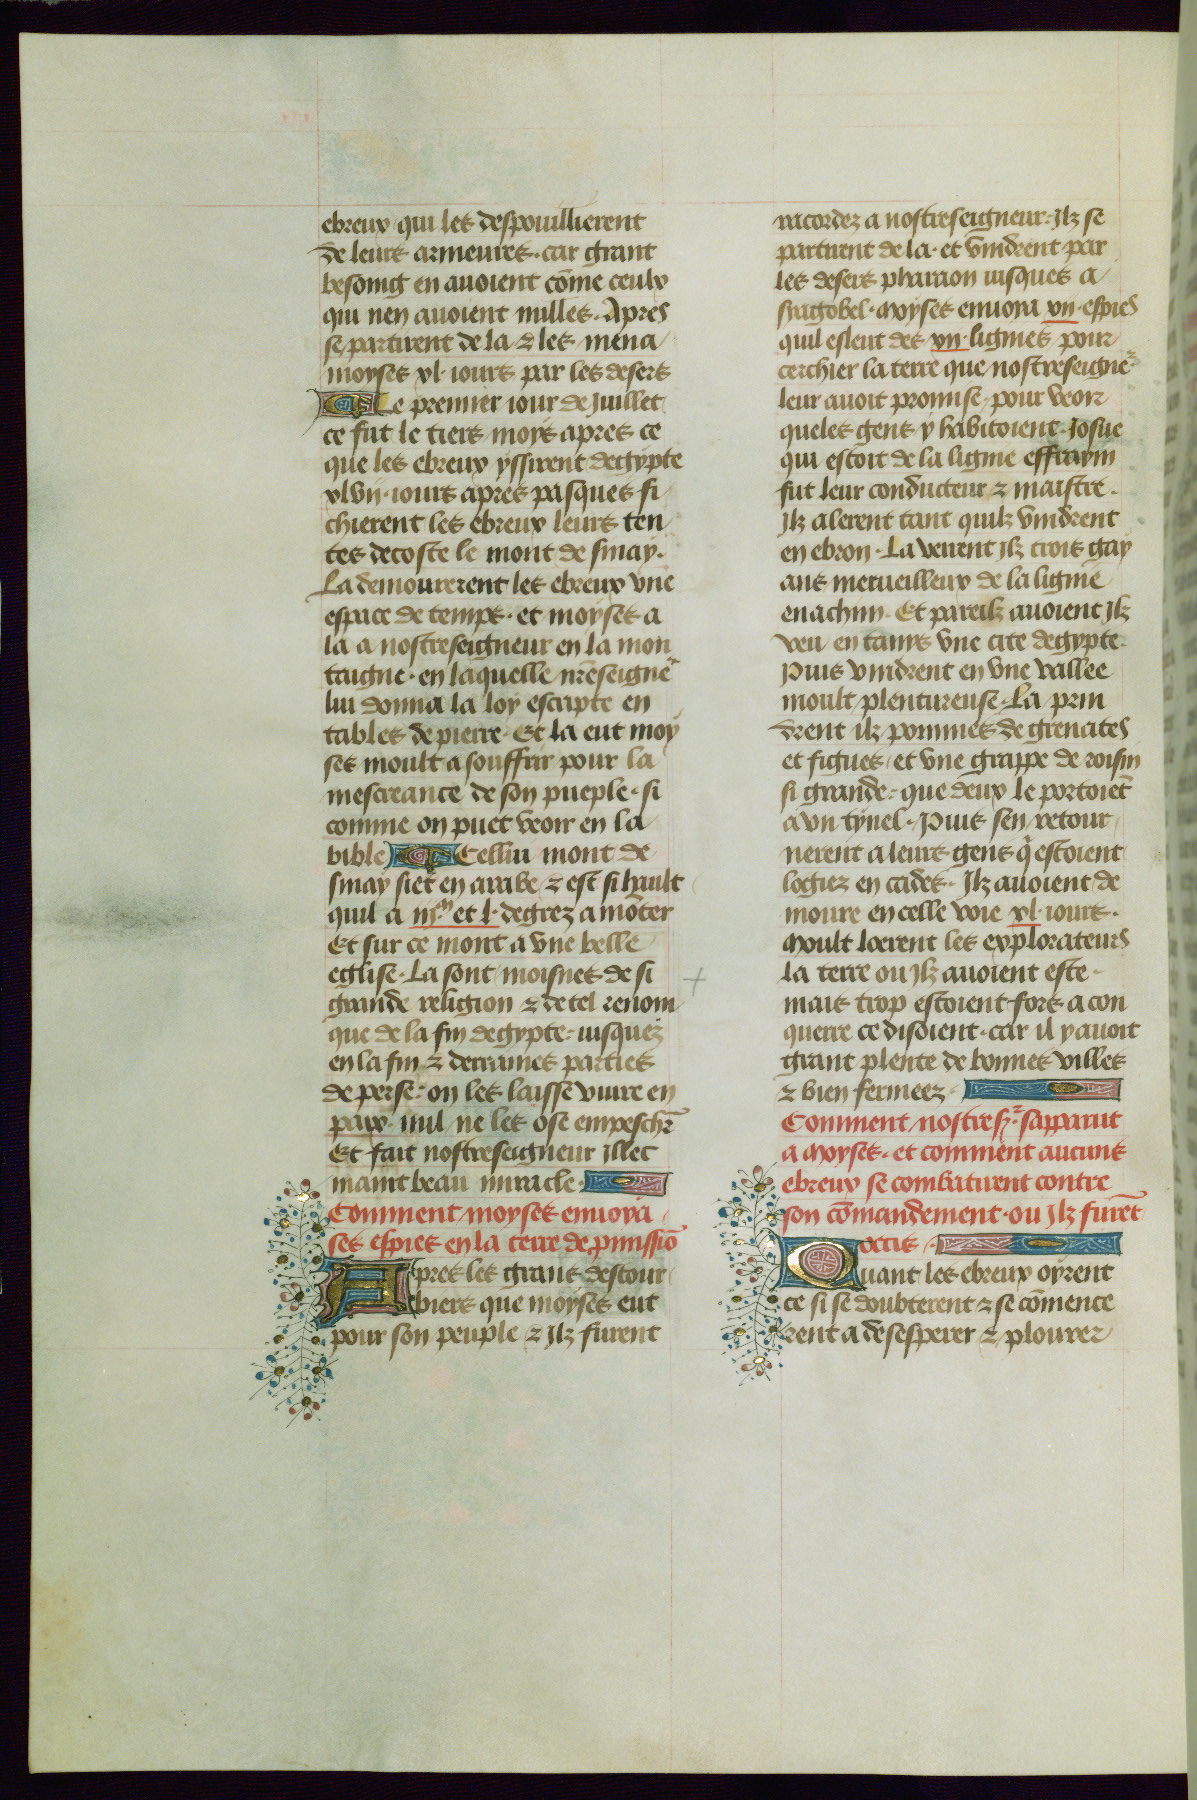 ebreux qui les despouillierent
de leurs armeures. car grant
besoing en auoient cōme ceulx
qui nen auoient nulles. Apres
se partirent de la ⁊ les mena
moyses xl. iours par les desers
Le premier iour de Juillet
ce fut le tiers moys apres ce
que les ebreux yssirent degypte
xlvij. iours apres pasques fi
chierent les ebreux leurs ten
tes decoste le mont de sinay.
La demourerent les ebreux vne
espace de temps. et moyses a
la a nostreseigneur en la mon
taigne. en laquelle nr̄eseigne᷑
lui donna la loy escripte en
tables de pierre. Et la eut moy
ses moult a souffrir pour la
mescreance de son pueple. si
comme on puet veoir en la
bible Cellui mont de
sinay siet en arrabe ⁊ est si hault
quil a iijᵐ et l. degrez a mōter
Et sur ce mont a vne belle
eglise. La sont moisnes de si
grande religion ⁊ de tel renom
que de la fin degypte. iusquez
en la fin ⁊ derraines parties
de perse. on les laisse viure en
paix. nul ne les ose empeschr̄
Et fait nostreseigneur illec
maint beau miracle.
Comment moyses enuoya
ses espies en la terre de ꝓmissiō
Apres les grans destour
biers que moyses eut
pour son peuple ⁊ ilz furent
racordez a nostreseigneur. Ilz se
partirent de la. et vindrent par
les desers pharaon iusques a
Moyses enuoya xij. espies
quil esleut des xij. lignies pour
cerchier la terre que nostreseigne᷑
leur auoit promise. pour veoir
queles gens y habitoient. Josue
qui estoit de la lignie effraym
fut leur conducteur ⁊ maistre.
Ilz alerent tant quilz vindrent
en ebron. La veirent ilz trois gay
ans merueilleux de la lignie
enachim. Et pareilz auoient ilz
veu en tanys vne cite degypte.
Puis vindrent en vne vallee
moult plentureuse. La prin
drent ilz pommes de grenates
et figues. et vne grappe de roisin
si grande. que deux le portoiēt
a vn tynel. Puis sen retour
nerent a leurs gens q̄ estoient
logiez en cades. Ilz auoient de
moure en celle voie xl. iours.
Moult loerent les explorateurs
la terre ou ilz auoient este.
mais trop estoient fors a con
querre ce disoient. car il y auoit
grant plente de bonnes villes
⁊ bien fermeez.
Comment nostres᷑. sapparut
a Moyses. et comment aucuns
ebreux se combatirent contre
son cōmandement. ou ilz furēt
occis.
Quant les ebreux oyrent
ce si se doubterent ⁊ se cōmence
rent a desesperer ⁊ plourer